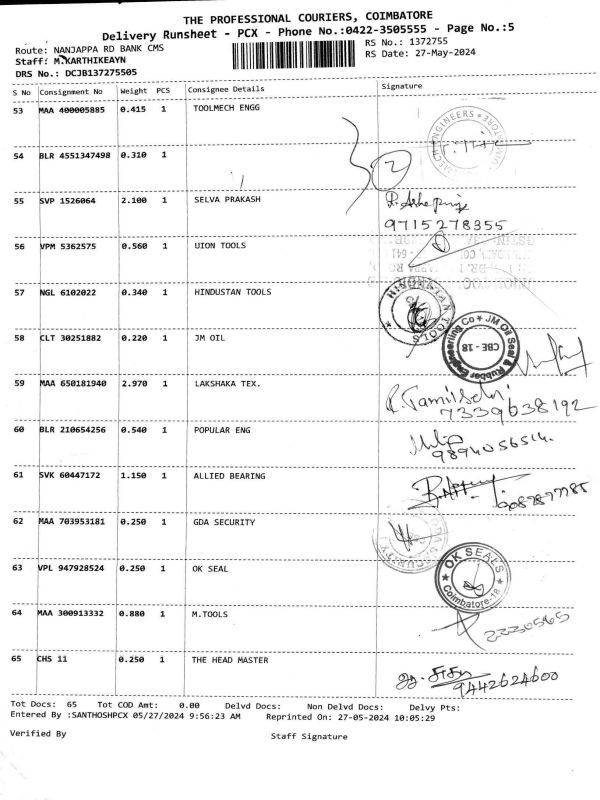 THE PROFESSIONAL COURIERS, COIMBATORE
Delivery Runsheet - PCX - Phone No.:0422-3505555 - Page No.:5
Route: NANJAPPA RD BANK CMS
RS No.: 1372755
Staff: M.KARTHIKEAYN
RS Date: 27-May-2024
DRS No.: DCJB137275505
S No Consignment No Weight PCS Consignee Details Signature
53 MAA 400005885 0.415 1 TOOLMECH ENGG
54 BLR 4551347498 0.310 1
2
55 SVP 1526064 2.100 1 SELVA PRAKASH
9715278355
56 VPM 5362575 0.560 1 UION TOOLS
57 NGL 6102022 0.340 1 HINDUSTAN TOOLS
HINDUSTAN TOOLS
58 CLT 30251882 0.220 1 JM OIL
JM Oil Seal & Rubber Engineering Co
CBE - 18
59 MAA 650181940 2.970 1 LAKSHAKA TEX.
R. Tamilselvi
7339638192
60 BLR 210654256 0.540 1 POPULAR ENG
9894056514
61 SVK 60447172 1.150 1 ALLIED BEARING
62 MAA 703953181 0.250 1 GDA SECURITY
63 VPL 947928524 0.250 1 OK SEAL
OK SEALS
Coimbatore-18
64 MAA 300913332 0.880 1 M.TOOLS
2230565
65 CHS 11 0.250 1 THE HEAD MASTER
9442624600
Tot Docs: 65 Tot COD Amt: 0.00 Delvd Docs: Non Delvd Docs: Delvy Pts:
Entered By :SANTHOSHPCX 05/27/2024 9:56:23 AM Reprinted On: 27-05-2024 10:05:29
Verified By Staff Signature